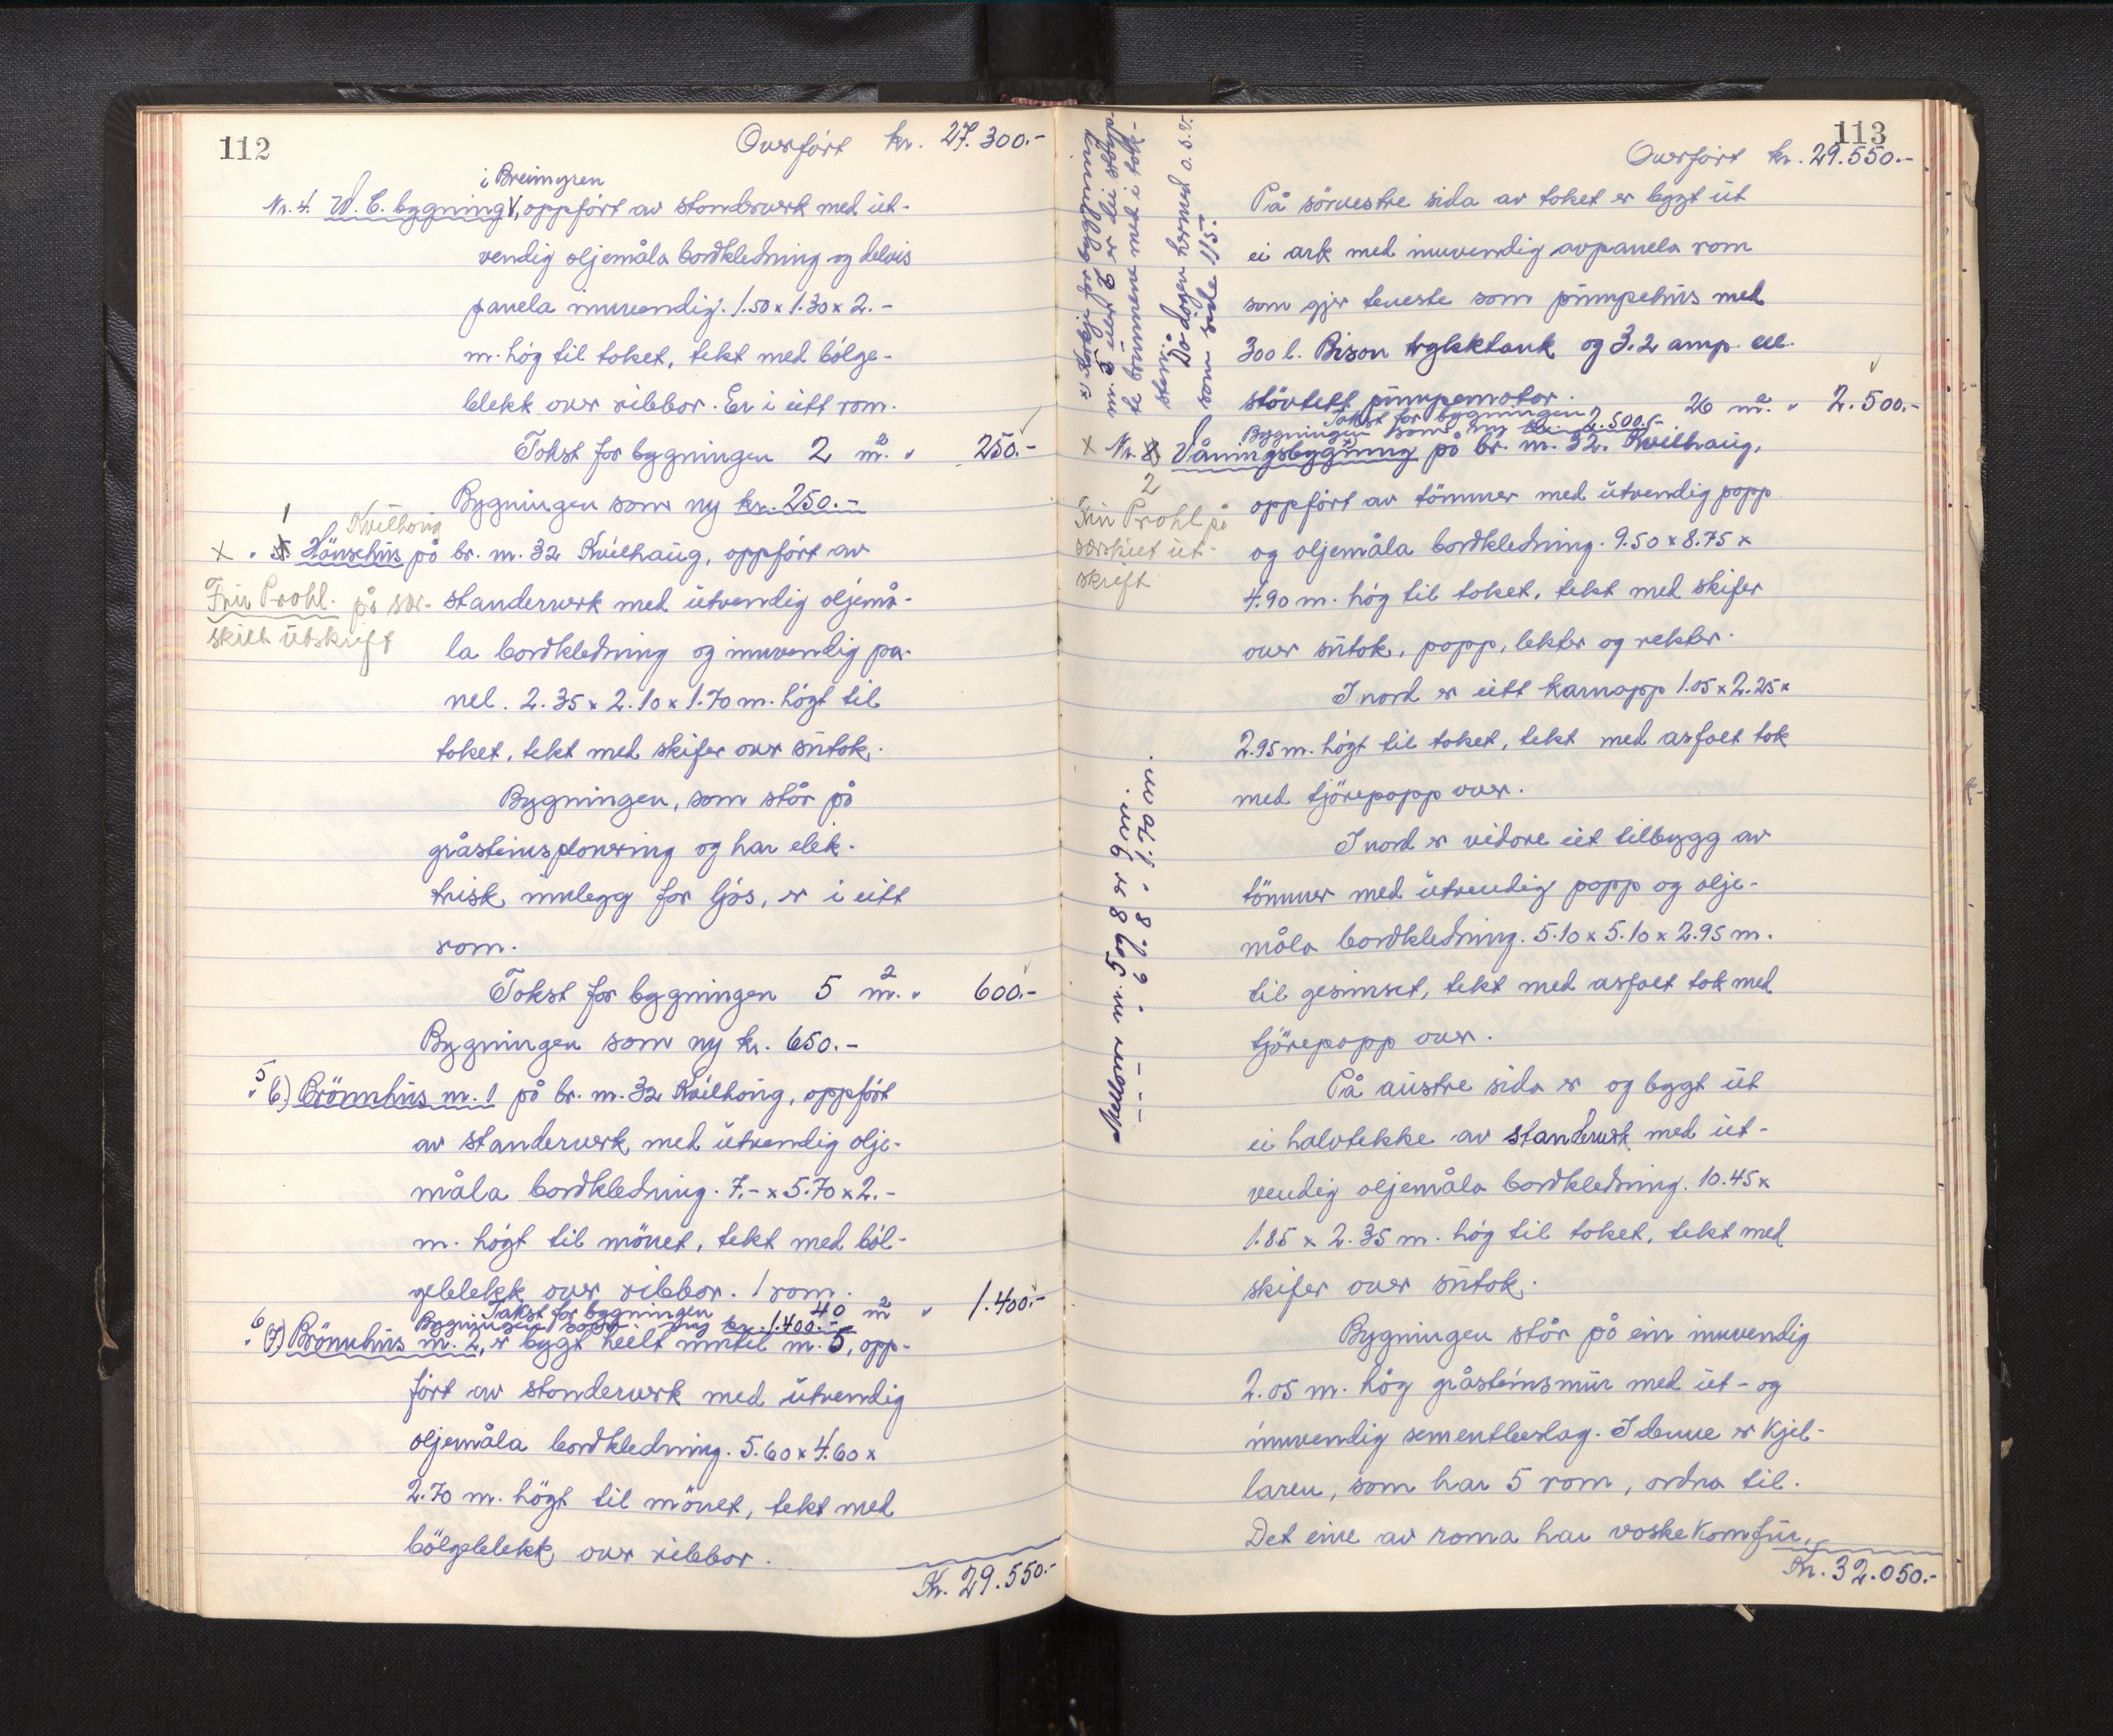 112
Overført kr. 27.300.-
i Breimyren
Nr. 4. W.C. bygning V, oppført av standerverk med ut-
vendig oljemåla bordkledning og delvis
panela innvendig. 1.50 x 1.30 x 2.-
m. høg til taket, tekt med bölge-
blekk over ribbor. Er i eitt rom.
Takst for bygningen 2 m². " 250.-
Bygningen som ny kr. 250.-
1
Kvilhaug
x " 5 Hönsehus på br. nr. 32 Kvilhaug, oppført av
Fru Prohl. på sær-
skilt utskrift
standerverk med utvendig oljemå-
la bordkledning og innvendig pa-
nel. 2.35 x 2.10 x 1.70 m. högt til
taket, tekt med skifer over sutak.
Bygningen, som står på
gråsteinsplanering og har elek-
trisk innlegg for ljos, er i eitt
rom.
Takst for bygningen 5 m². " 600.-
Bygningen som ny kr. 650.-
5
" 6.) Brönnhus nr. 1 på br. nr. 32 Kvilhaug, oppfört
av standerverk med utvendig olje-
måla bordkledning. 7.- x 5.70 x 2.-
m. högt til mönet, tekt med böl-
geblekk over ribbor. 1 rom.
Takst for bygningen 40 m² " 1.400.-
Bygningen som ny kr. 1.400.-
6
" 7.) Brönnhus nr. 2, er bygt heilt inntil nr. 5, opp-
fört av standerverk med utvendig
oljemåla bordkledning. 5.60 x 4.60 x
2.70 m. högt til mönet, tekt med
bölgeblekk over ribbor.
Kr. 29.550.-
113
Overført kr. 29.550.-
nr. 5 eller 6 er dei støyp-
te brunnene med i tak-
sten.
som side 115.
Mellom nr. 5 og 8 er 9 m.
- " - 6 " 8 " 1.70 m.
På sörvestre sida av taket er bygt ut
ei ark med innvendig avpanela rom
som gjer teneste som pumpehus med
300 l. Bison trykktank og 3.2 amp. ell.
støvtett pumpemotor. 26 m². " 2.500.-
Takst for bygningen
Bygningen som ny kr. 2.500.-
x Nr. 8 Våningsbygning på br. nr. 32. Kvilhaug,
2
Fru Prohl på
særskilt ut-
skrift
oppført av tömmer med utvendig papp
og oljemåla bordkledning. 9.50 x 8.75 x
4.90 m. hög til taket, tekt med skifer
over sutak, papp, lekter og rekter.
I nord er eitt karnapp 1.05 x 2.25 x
2.95 m. högt til taket, tekt med asfalt tak
med tjörepapp over.
I nord er vidare eit tilbygg av
tömmer med utvendig papp og olje-
måla bordkledning. 5.10 x 5.10 x 2.95 m.
til gesimset, tekt med asfalt tak med
tjörepapp over.
På austre sida er og bygt ut
ei halvtekke av standerverk med ut-
vendig oljemåla bordkledning. 10.45 x
1.85 x 2.35 m. hög til taket, tekt med
skifer over sutak.
Bygningen står på ein innvendig
2.05 m. hög gråsteinsmur med ut- og
innvendig sementbeslag. I denne er kjel-
laren, som har 5 rom, ordna til.
Det eine av roma har vaskekomfur,
Kr. 32.050.-